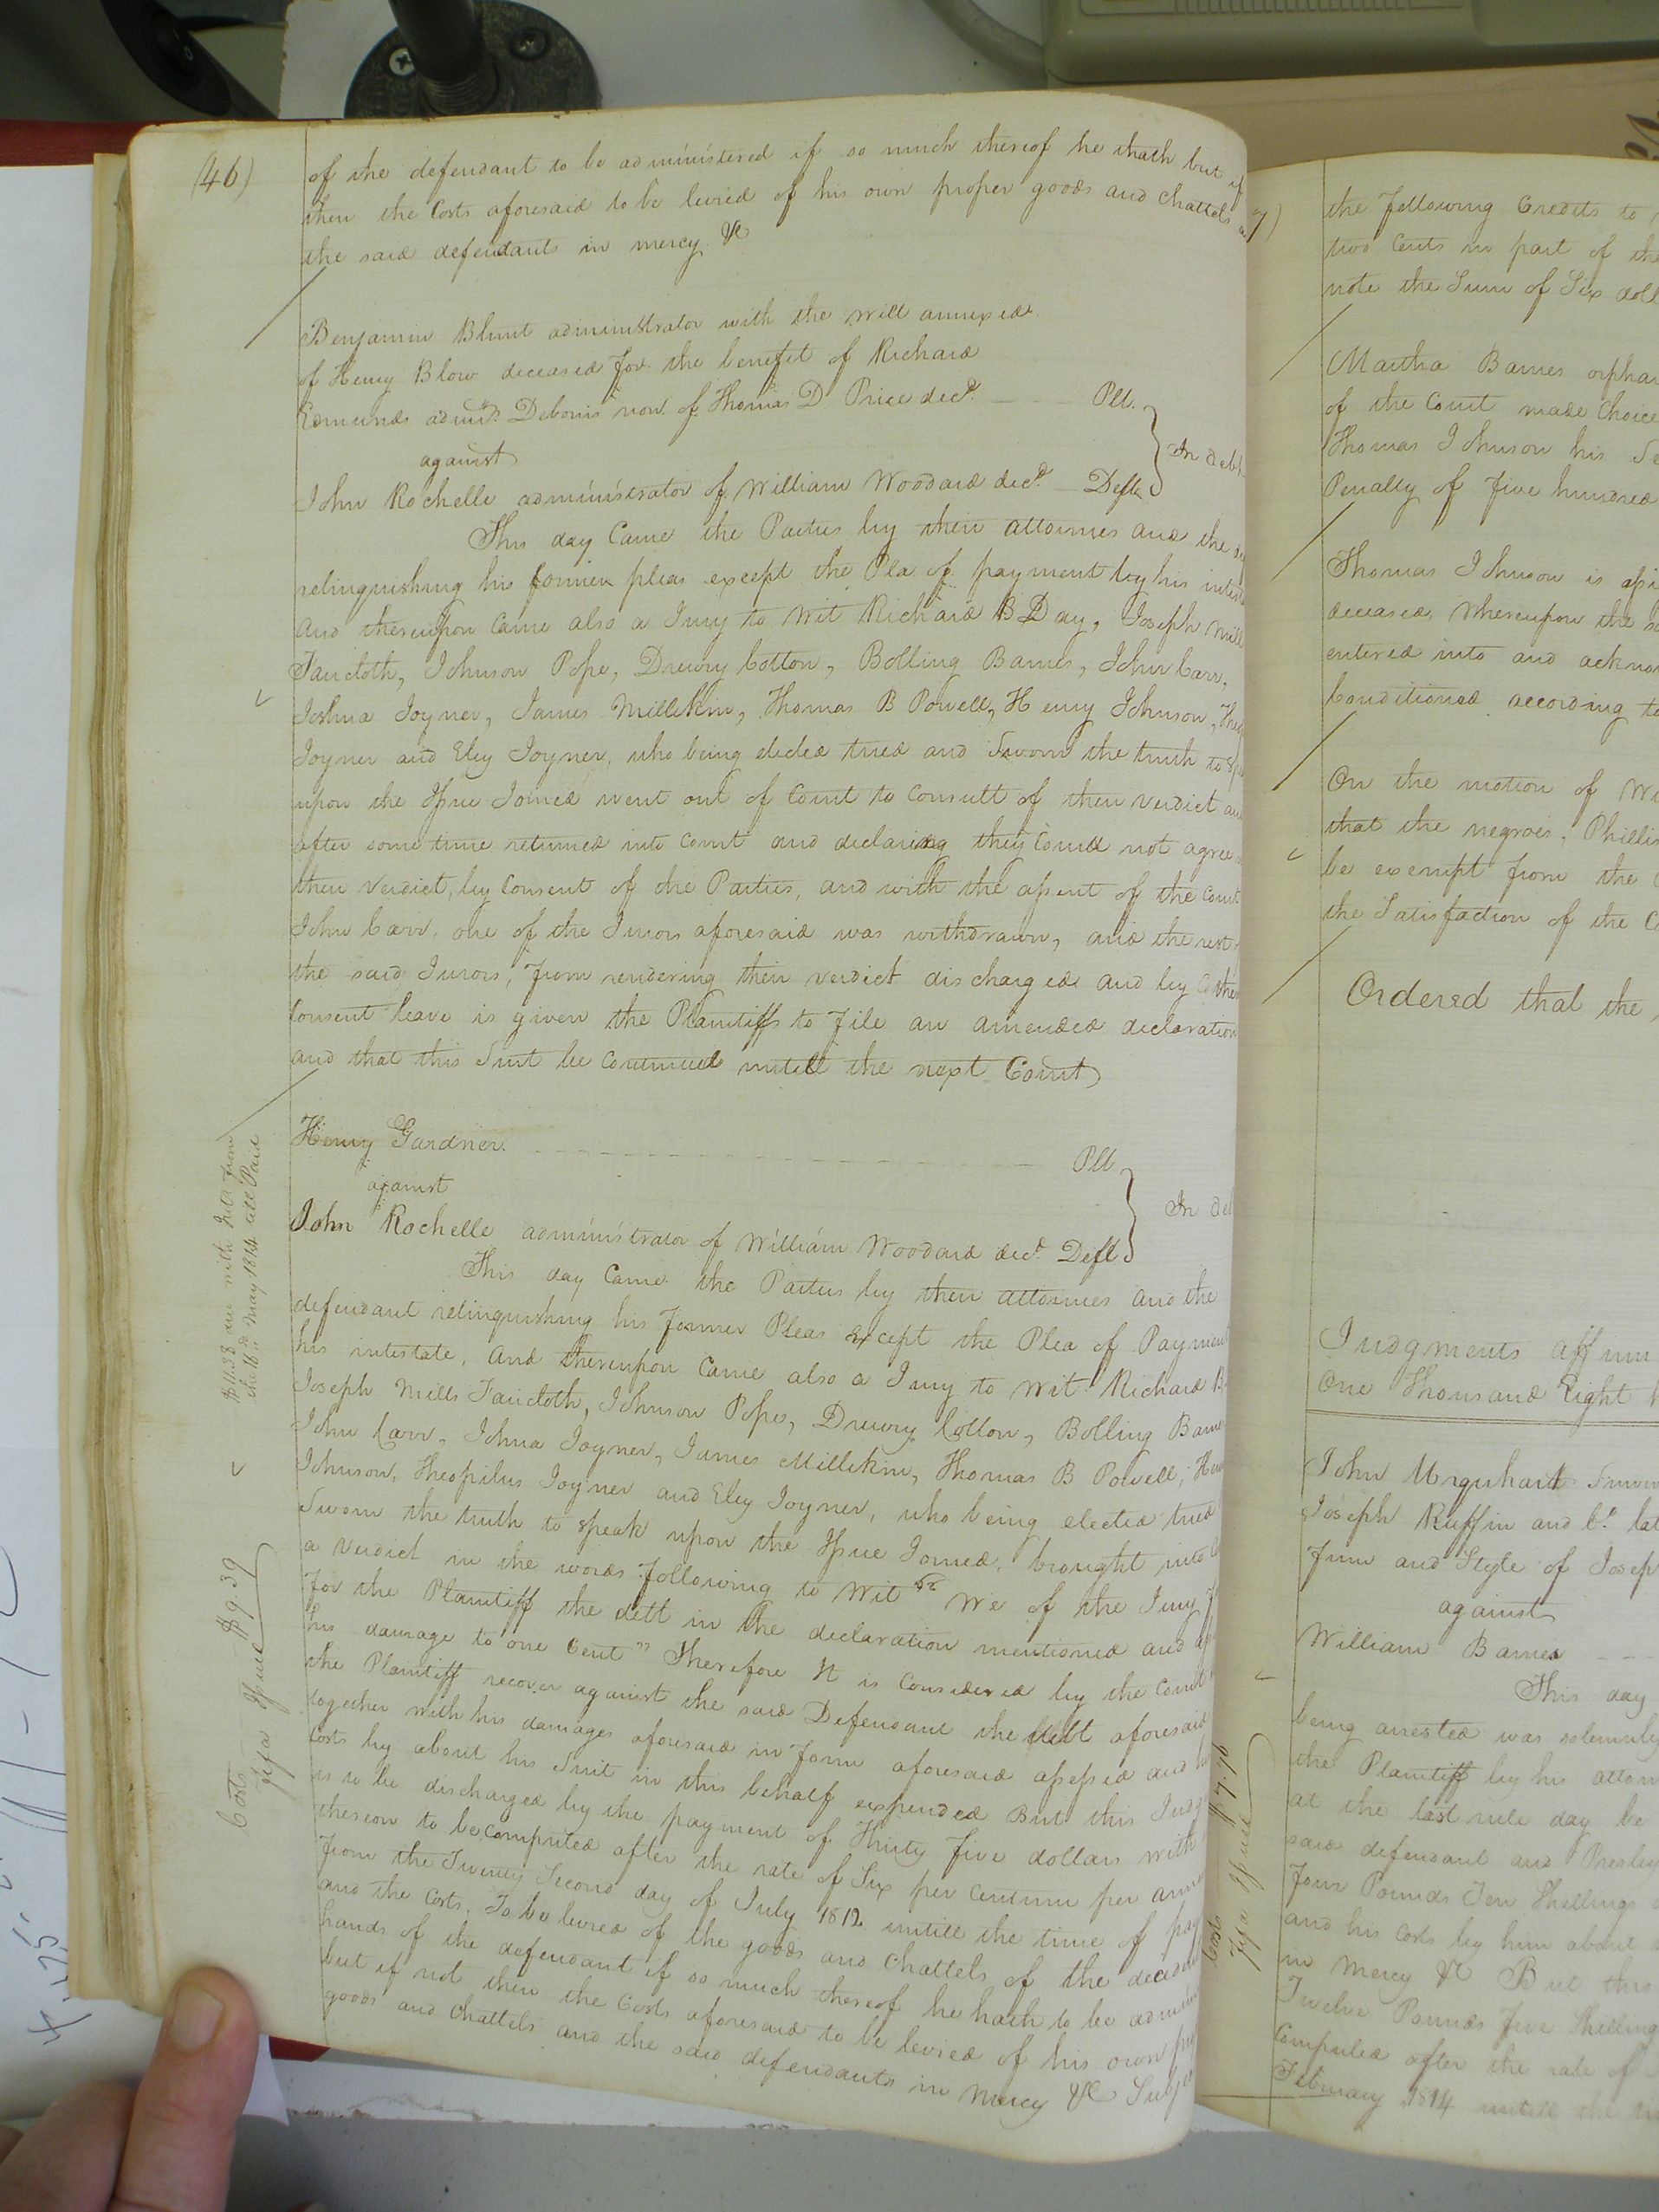 (46)
of the defendant to be administered if so much thereof he hath but if
then the Costs aforesaid to be levied of his own proper goods and chattels
the said defendants in mercy &c
Benjamin Blunt administrator with the will annexed
of Henry Blow deceased for the benefit of Richard
Edmunds admr. Debonis non of Thomas D Price decd. Plt.
against
In debt
John Rochelle administrator of William Woodard decd. Deft.
This day Came the Parties by their attornies and the
relinquishing his former pleas except the Plea of payment by his
And thereupon Came also a Jury to wit Richard B Day, Joseph Mills
Faircloth, Johnson Pope, Drewry Cotton, Bolling Barnes, John Carr,
Joshua Joyner, James Millikin, Thomas B Powell, Henry Johnson,
Joyner and Eley Joyner, who being elected tried and Sworn the truth to
upon the Issue Joined went out of Court to Consult of their verdict
after some time returned into Court and declaring they Could not agree
their verdict, by Consent of the Parties, and with the assent of the Court
John Carr, one of the Jurors aforesaid was withdrawn, and the rest
the said Jurors, from rendering their verdict discharged and by
Consent leave is given the Plaintiffs to file an amended declaration
and that this Suit be Continued untill the next Court
Henry Gardner Plt
against
In
John Rochelle administrator of William Woodard decd. Deft
This day Came the Parties by their attornies And the
defendant relinquishing his former Pleas except the Plea of Payment
his intestate, And thereupon Came also a Jury to wit Richard B
Joseph Mills Faircloth, Johnson Pope, Drewry Cotton, Bolling Barnes
John Carr, Joshua Joyner, James Millikin, Thomas B Powell, Henry
Johnson, Theopilus Joyner and Eley Joyner, who being elected tried
Sworn the truth to speak upon the Issue Joined, brought into
a verdict in the words following to wit "We of the Jury
for the Plaintiff the debt in the declaration mentioned and
his damage to one Cent" Therefore It is Considered by the Court
the Plaintiff recover against the said Defendant the debt aforesaid
together with his damages aforesaid in form aforesaid assessed and his
Costs by about his Suit in this behalf expended But this
is to be discharged by the payment of Thirty five dollars with
thereon to be computed after the rate of Six per Centum per
from the Twenty Second day of July 1812 untill the time of
and the Costs, To be levied of the goods and Chattels of the
hands of the defendant if so much thereof he hath to be
but if not then the Costs aforesaid to be levied of his own
goods and chattels and the said defendants in mercy &c
the 16th May 1814 all Paid
Costs $9.39
fifa Issued
the following Credits to
two Cents in part of the
note the Sum of Six
Martha Barnes orphan
of the Court made Choice
Thomas Johnson his
Penalty of five hundred
Thomas Johnson is
deceased, Whereupon the
entered into and
Conditioned according to
On the motion of
that the negroes,
be exempt from the
the Satisfaction of the
Ordered that the
Judgments
One Thousand Eight
John Urquhart
Joseph Ruffin and Co.
firm and Style of
against
William Barnes
This day
being arrested was solemnly
the Plaintiff by his
at the last rule day be
said defendant and Presley
four Pounds Ten Shillings
and his Costs by him about
in mercy &c But this
Twelve Pounds five Shillings
Computed after the rate of
February 1814 untill the